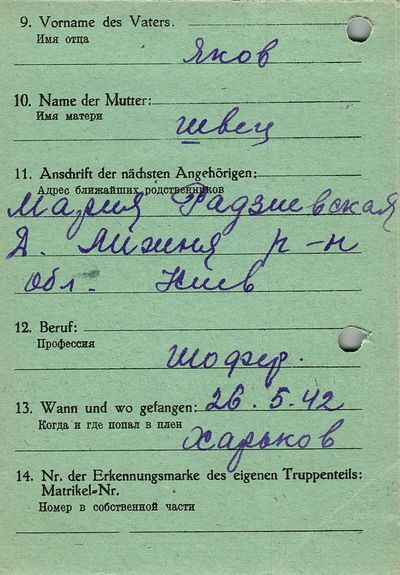 9. Vorname des Vaters.
Имя отца
Яков
10. Name der Mutter:
Имя матери
Швец
11. Anschrift der nächsten Angehörigen:
Адрес ближайших родственников
Мария Радзиевская
Д. р-н
обл. Киев
12. Beruf:
Профессия
Шофер.
13. Wann und wo gefangen: 26.5.42
Когда и где попал в плен
Харьков
14. Nr. der Erkennungsmarke des eigenen Truppenteils:
Matrikel-Nr.
Номер в собственной части